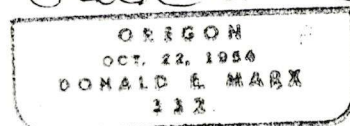 OREGON
OCT. 22, 1954
DONALD E. MARX
332